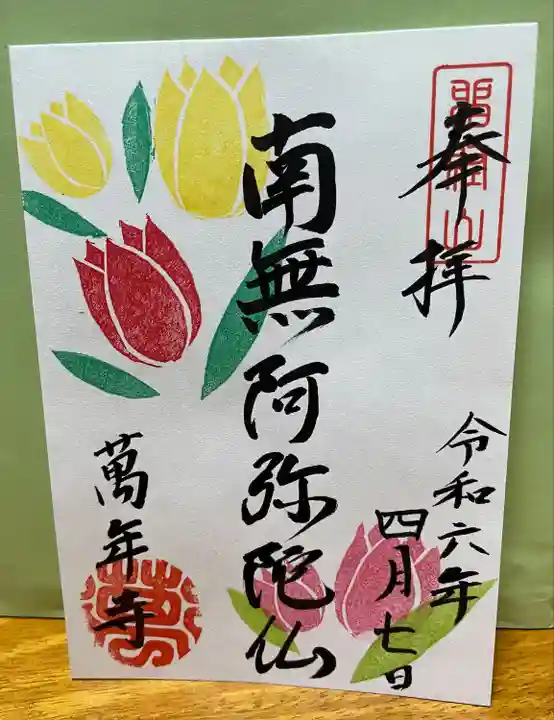 奉拝
令和六年
四月七日
南無阿弥陀仏
萬年寺